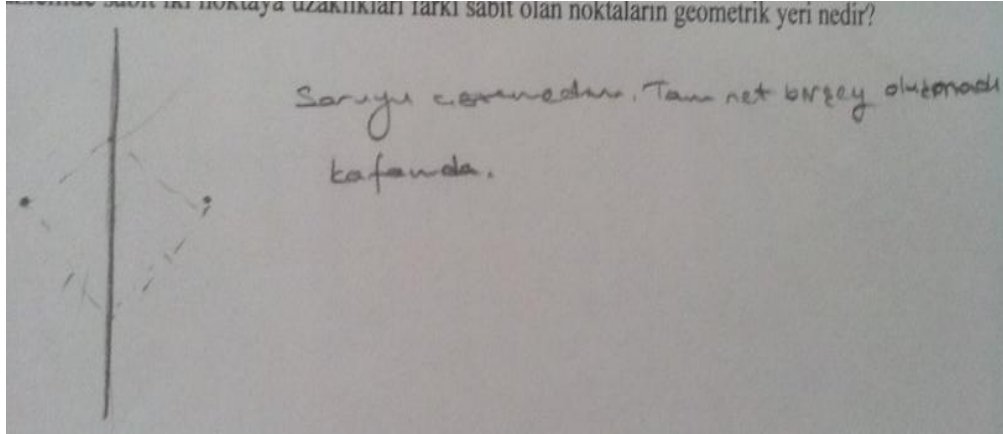 sabit iki noktaya uzaklıkları farkı sabit olan noktaların geometrik yeri nedir?
Soruyu çözemedim. Tam net birşey oluşmadı
kafamda.